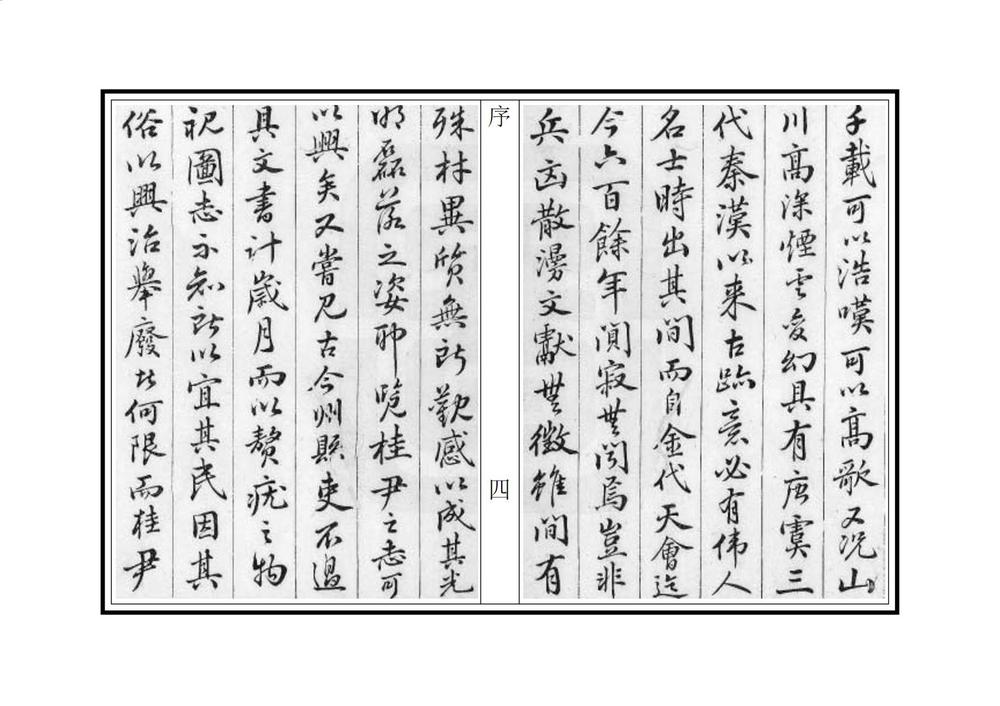 千載可以浩嘆可以高歌又况山
川高深煙雲变幻具有唐虞三
代秦漢以来古跡意必有偉人
名士時出其間而自金代天會迄
今六百餘年闃寂無聞焉豈非
兵凶散漫文獻無徵雖間有
序
四
殊材異質無所觀感以成其光
明磊落之姿耶覽桂尹之志可
以興矣又嘗見古今州縣吏不過
具文書計歲月而以贅疣之物
視圖志亦知所以宜其民因其
俗以興治舉廢者何限而桂尹